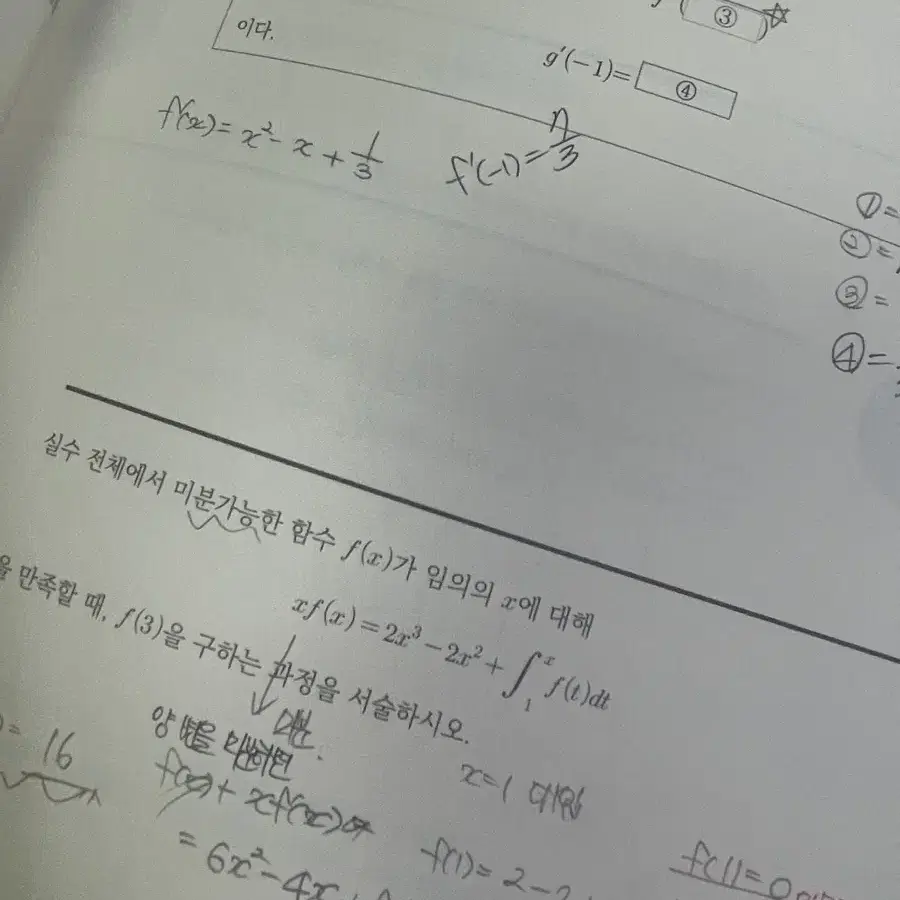 ③ )☆
이다.
g′(−1)= ④
f′(x)= x² − x + 1/3
f′(-1) = 7/3
① =
② =
③ =
④ =
실수 전체에서 미분가능한 함수 f(x)가 임의의 x에 대해
xf(x)=2x³−2x²+∫₁ˣ f(t)dt
을 만족할 때, f(3)을 구하는 과정을 서술하시오.
= 16
양변을 미분하면
x=1 대입
f(x) + xf′(x)
= 6x² − 4x +
f(1) = 2 − 2
f(1) = 0